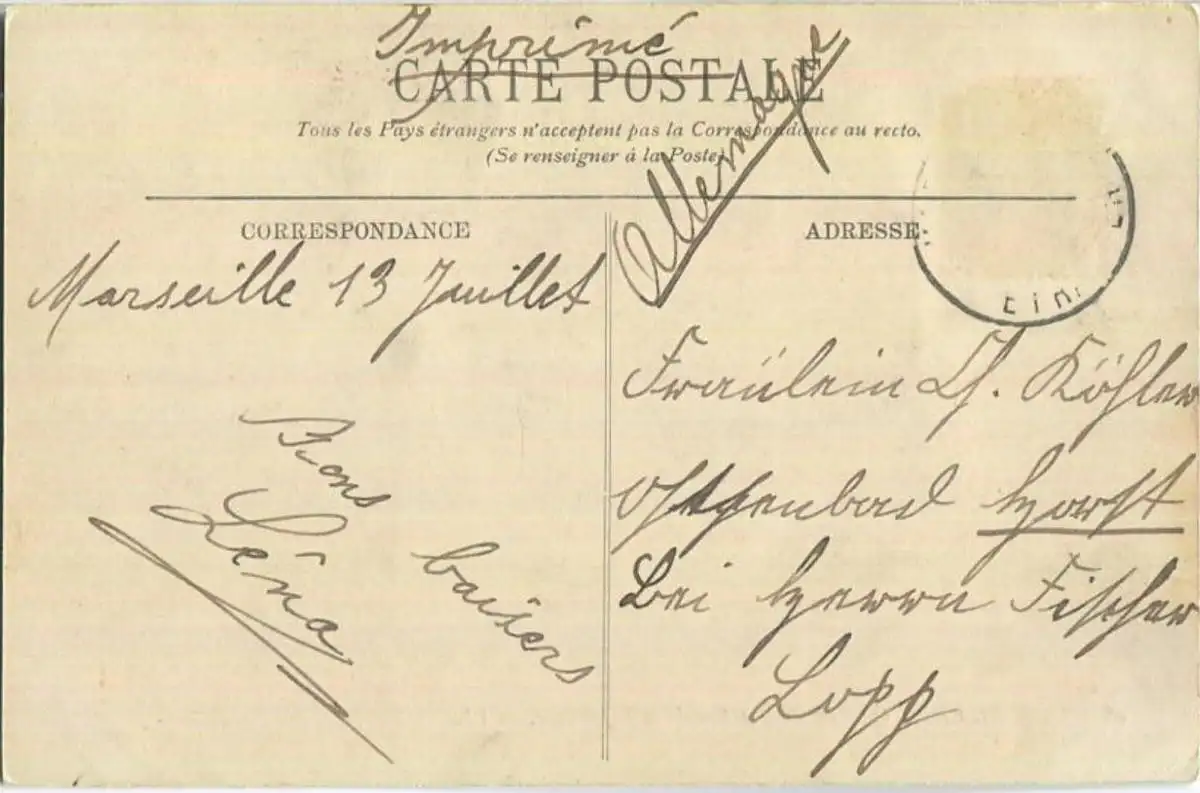 Imprimé
CARTE POSTALE
Allemagne
Tous les Pays étrangers n'acceptent pas la Correspondance au recto.
(Se renseigner à la Poste)
CORRESPONDANCE
ADRESSE
Marseille 13 Juillet
Bons baisers
Léna
Fräulein Ch. Köhler
Ostseebad Horst
Bei Herrn Fischer
Lopp